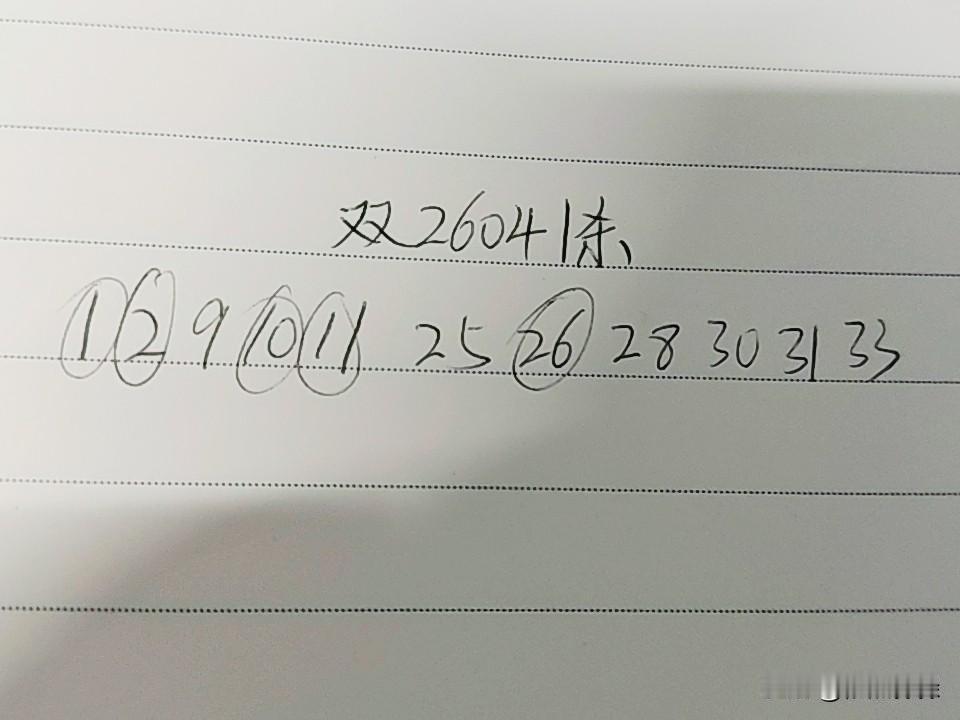 双26041条、
1 2 9 10 11 25 26 28 30 31 33